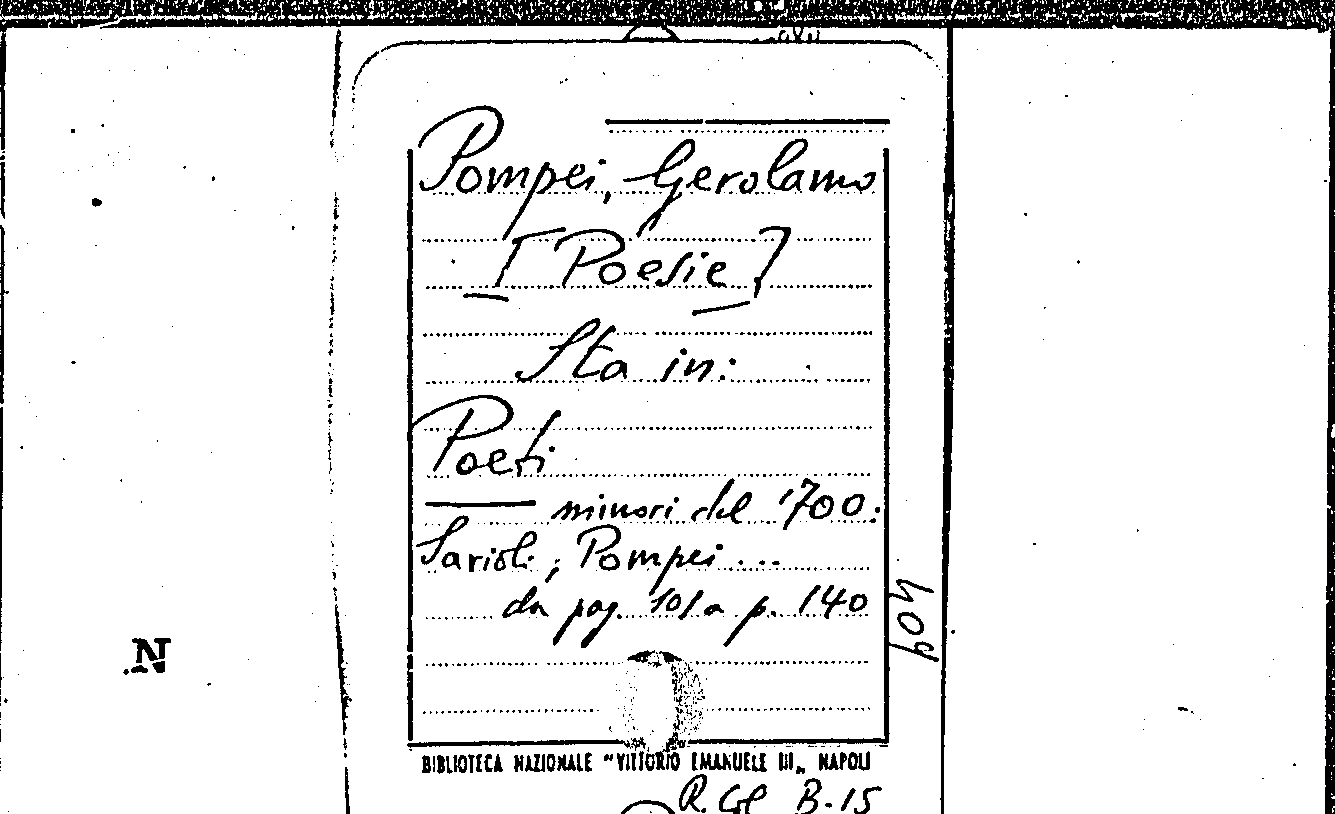 Pompei, Gerolamo
[Poesie]
Sta in:
Poeti
minori del '700:
Savioli, Pompei...
da pag. 101 a p. 140
409
N
BIBLIOTECA NAZIONALE "VITTORIO EMANUELE III" NAPOLI
B-15